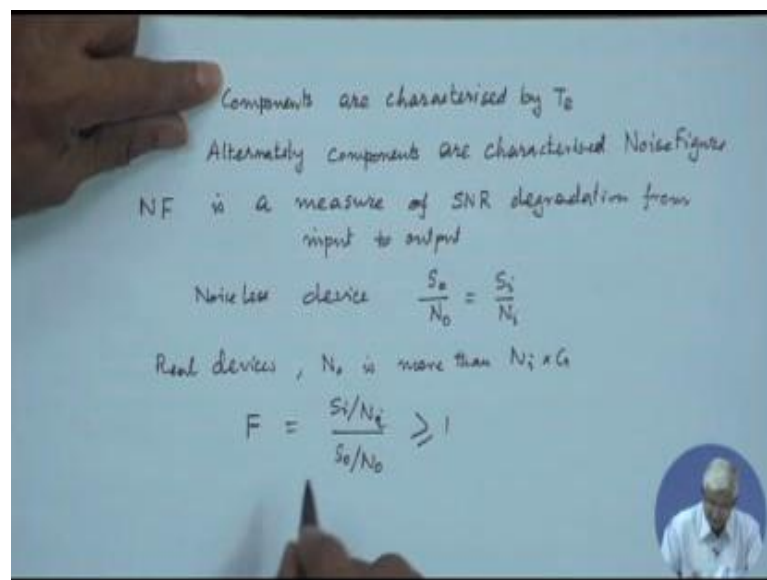 Components are characterised by Te
Alternately components are characterised Noise Figure
NF is a measure of SNR degradation from
input to output
Noise less device So/No = Si/Ni
Real devices, No is more than Ni × G
F = (Si/Ni)/(So/No) ⩾ 1